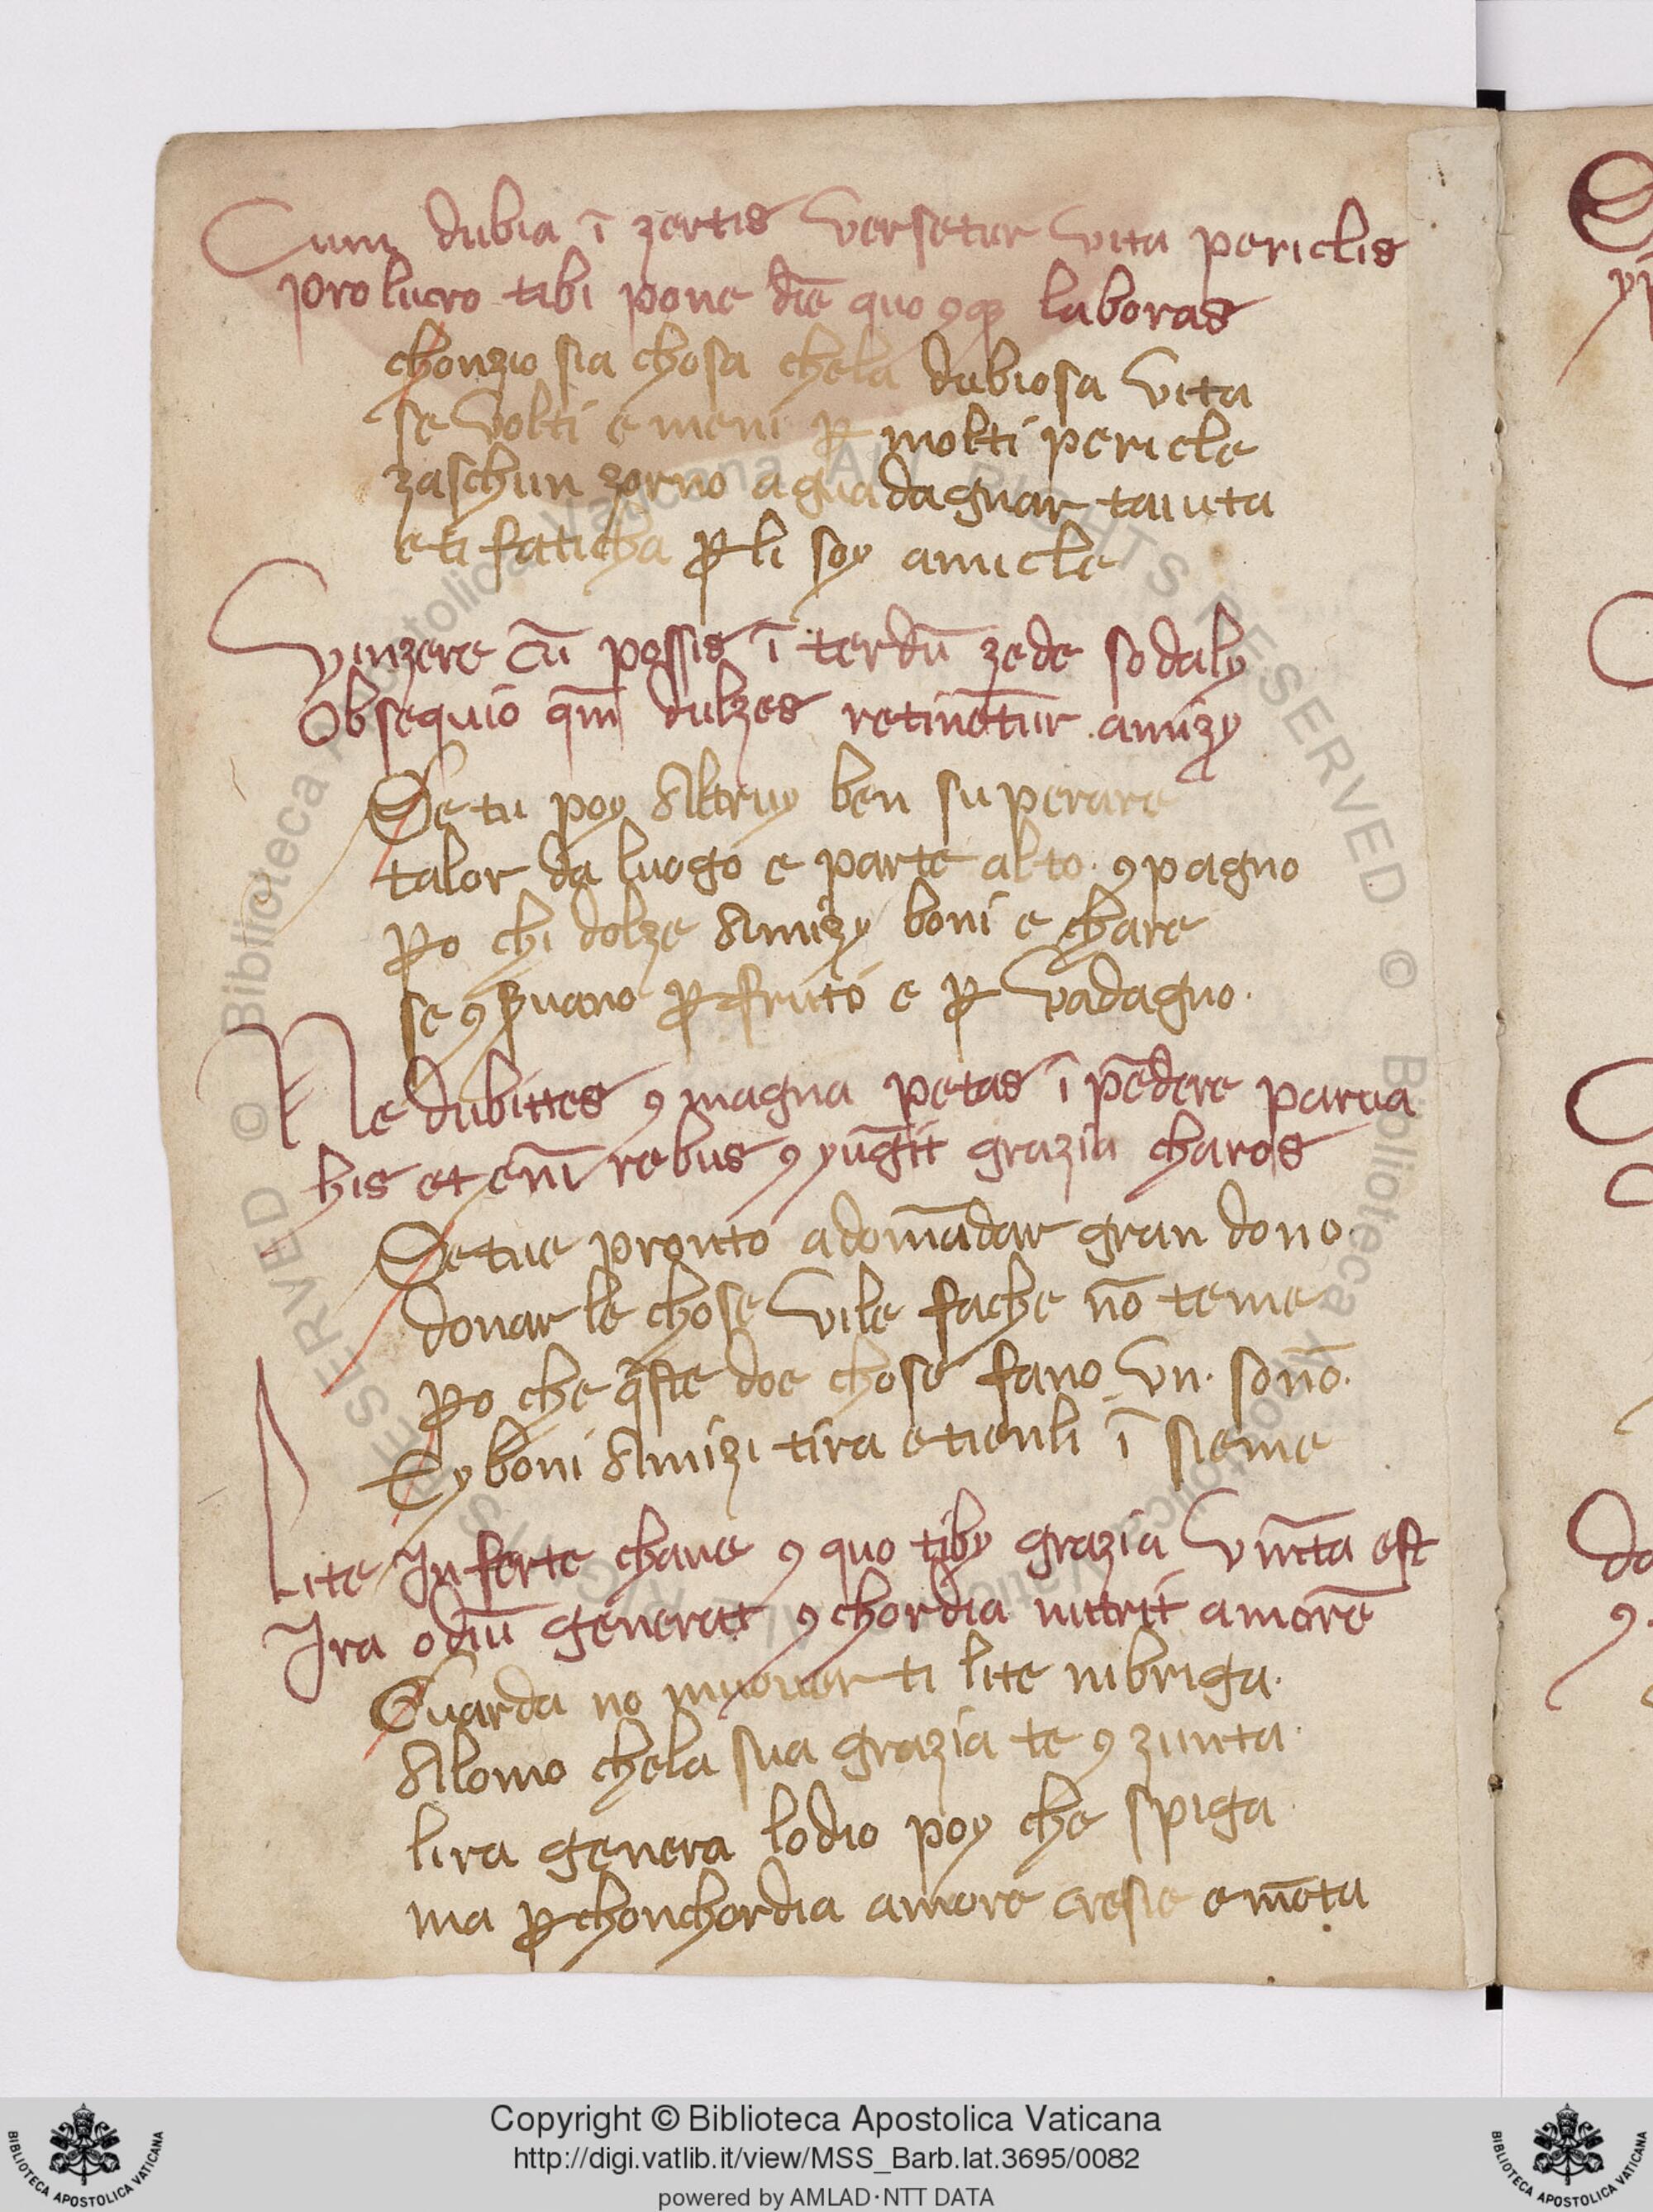 Cum dubia ī zertis versetur vita periclis
pro lucro tibi pone diē quo ꝯqꝫ laboras
chonzio sia chosa chela dubiosa vita
se volti e meni ꝑ molti pericle
zaschun zorno a guadagnar taiuta
e ti faticha ꝑ li soy amicle
Vinzere cū possis ī terdū zede sodaly
Obsequio qm̄ dulzes retinētur amizy
Se tu poy Altruy ben superare
talor da luogo e parte al to ꝯpagno
ꝑo chi dolze Amizy boni e chare
se ꝯ ꝑ fruto e ꝑ vadagno.
Ne dubittes ꝯ magna petas ī pēdere parva
his et enī rebus ꝯyūgit grazia charos
Se tue pronto adomādar gran dono
donar le chose vile fache nō teme
ꝑo che q̄ste doe chose fano vn. sonō.
Ey boni Amizi tira e tienli ī sieme
Lite Inferte chave ꝯ quo tiby grazia est
Ira odiū generat ꝯchordia nutrit amorē
Guarda no muover ti lite ni briga.
Alomo chela sua grazia te ꝯ zunta.
lira genera lodio poy che spiga
ma ꝑ chonchordia amore cresie e mōta
© Biblioteca Apostolica Vaticana ALL RIGHTS RESERVED © Biblioteca Apostolica Vaticana ALL RIGHTS RESERVED
Copyright © Biblioteca Apostolica Vaticana
http://digi.vatlib.it/view/MSS_Barb.lat.3695/0082
powered by AMLAD·NTT DATA
BIBLIOTECA APOSTOLICA VATICANA
BIBLIOTECA APOSTOLICA VATICANA